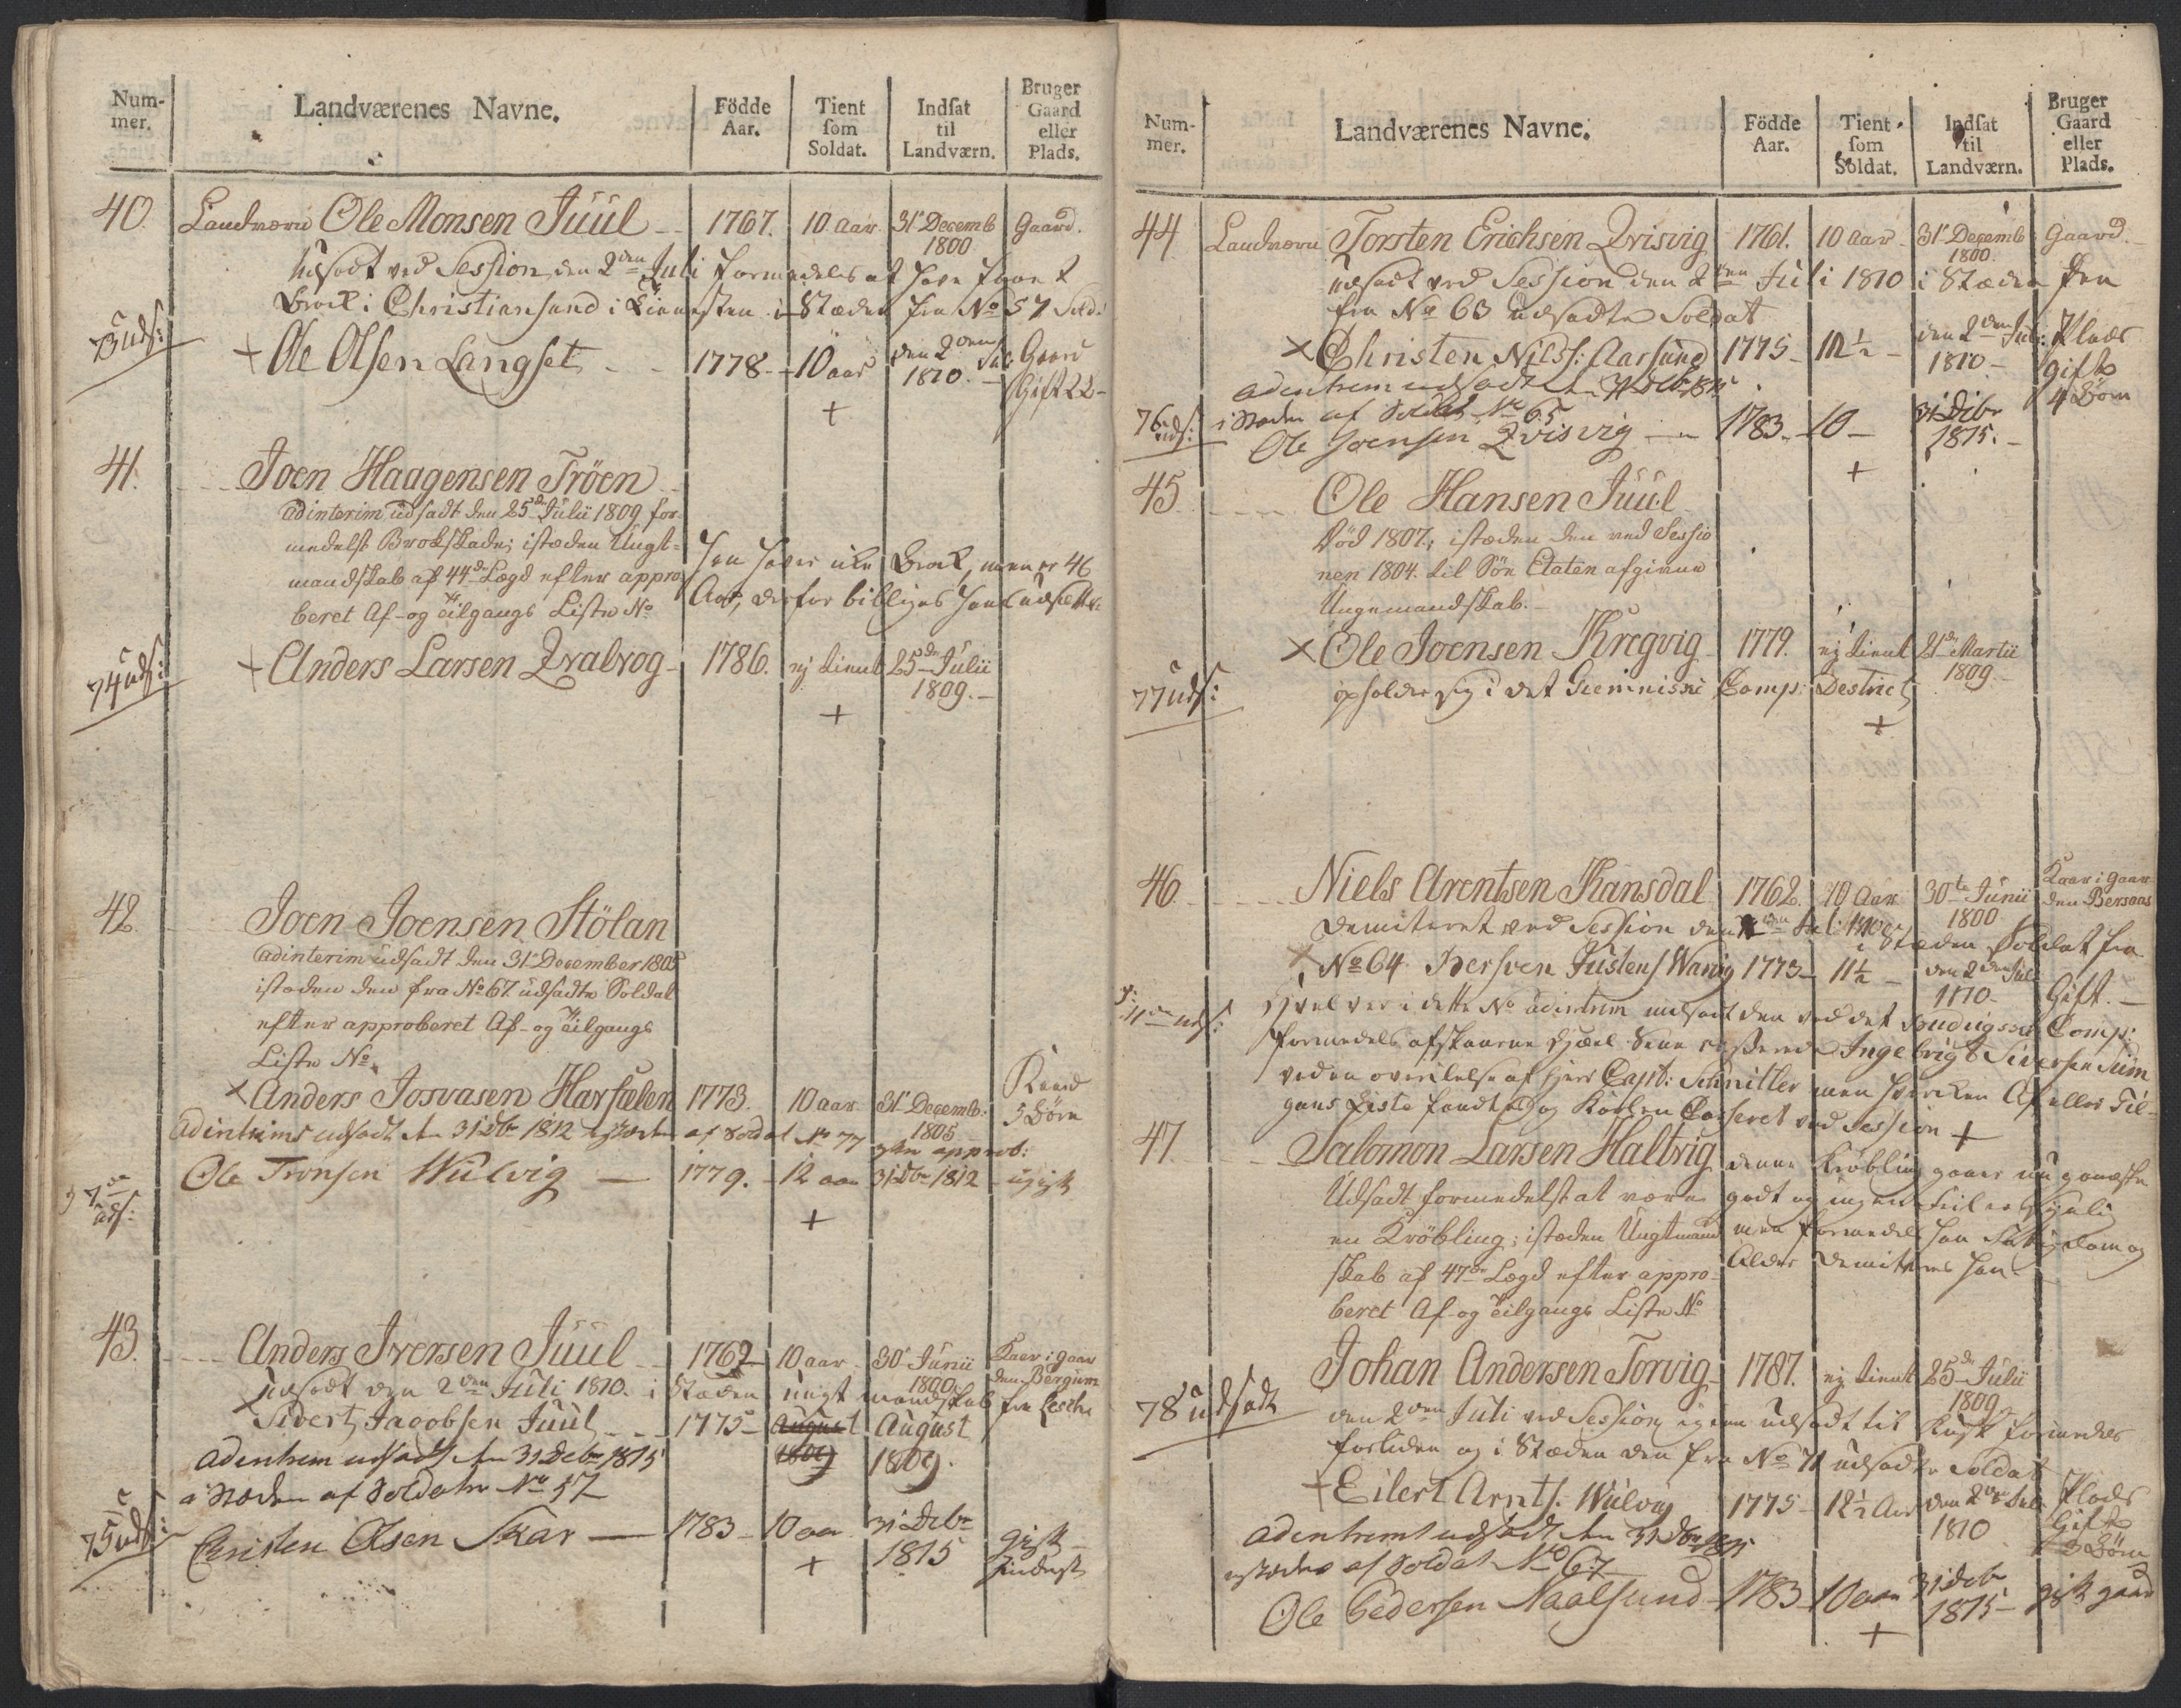 Num-
mer.
Landværenes Navne.
Födde
Aar.
Tient
som
Soldat.
Indsat
til
Landværn.
Bruger
Gaard
eller
Plads.
40. Landværn Ole Monsen Juul 1767. 10 aar 31te Decemb 1800 Gaard.
Udsadt ved Session den 2den Juli formedelst at have faaet
Brock i Christiansund i Tienesten i Stæden fra No 57 Sold:
73 uds: + Ole Olsen Langset 1778 10 aar den 2den Juli 1810. Gaard Gift
+
41. Joen Haagensen Tröen
adinterim udsadt den 25de Julii 1809 for-
medelst Brokskade; istæden Ungt-
mandskab af 44de Lægd efter appro-
beret Af- og Tilgangs Liste No
Han haver icke Brock, men er 46
Aar, derfor billiges hans udsættelse
74 uds: + Anders Larsen Qvalvog 1786. ej tient 25de Julii 1809.
+
42. Joen Joensen Stölan
adinterim udsadt den 31te December 1805
istæden den fra No 67 udsadte Soldat
efter approberet Af- og Tilgangs
Liste No
× Anders Josvasen Harsælen 1773. 10 aar 31te Decemb: 1805 5 Börn
adinterims udsadt den 31 Dbr 1812 istæden af Soldat No 77
Ole Tronsen Wulvig 1779. 12 aar 31 Dbr 1812 ugift
uds:
+
43. Anders Iversen Juul 1762 10 aar 30te Junii 1800 Kaar i gaar
den Bergum
Udsadt den 2den Juli 1810. i Stæden ungt mandskab fra
× Sivert Jacobsen Juul 1775 August 1809 August 1809.
adinterim udsadt den 31 Debr 1815
i Stæden af Soldaten No 57
75 uds: Christen Olsen Skar 1783 10 aar 31 Debr 1815 gift
+
Num-
mer.
Landværenes Navne.
Födde
Aar.
Tient
som
Soldat.
Indsat
til
Landværn.
Bruger
Gaard
eller
Plads.
44 Landværn Torsten Erichsen Qvisvig 1761. 10 aar 31te Decemb 1800. Gaard.
udsadt ved Session den 2den Juli 1810 i Stæden den
fra No 63 udsadte Soldat
× Christen Nilss: Aarsund 1775 10½ den 2den Juli: 1810 Plads gift 4 Börn
adinterim udsadt den 31 Debr 1815
i Stæden af Soldat No 65
76 uds: Ole Joensen Qvisvig 1783 10 31 Dbr 1815.
+
45. Ole Hansen Juul
Död 1807; istæden den ved Sessio
nen 1804. til Söe Etaten afgivne
Ungemandskab.
× Ole Joensen Kregvig 1779. ej tient 21de Martii 1809
77 uds: opholder sig i det Comp: Destrict
+
46. Niels Arentsen Ransdal 1762. 10 Aar 30te Junii 1800 Kaar i gaar
den Bersaas
Demiteret ved Session den 2den Juli 1810 i Stæden Soldat fra
× No 64. Justens Warvig 1773 11½ den 2den Juli 1810 Gift.
No adinterim udsadt den ved det Comp:
formedelst Ingebrigt Siversen
ved en overilelse af Herr Capit: Schnitler men hverken Af eller Til-
gans Liste Casseret ved Session +
47. Salomon Larsen Haltvig
Udsadt formedelst at være
en Kröbling; istæden Ungtmand
skab af 47de Lægd efter appro-
beret Af- og Tilgangs Liste No
denne Kröbling gaaer nu ganske
godt og ingen feil er synlig
men formedelst hans Sygdom og
Alder Demiteres han
Johan Andersen Torvig 1787. ej tient 25de Julii 1809
78 udsadt den 2den Juli ved Session igien udsadt til formedelst
forliden og i Stæden den fra No 71 udsadte Soldat
+ Eilert Arnts: Wulvig 1775 12½ Aar den 2den Juli 1810 Plads Gift 3 Börn
adinterim udsadt den 31 Dbr 1815
istæden af Soldat No 67
Ole Pedersen Naalsund 1783 10 aar 31 Deb 1815 gift gaard
+